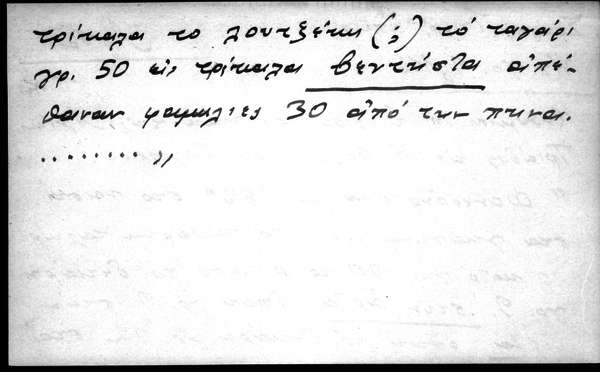 τρίκαλα το λουτζέκι (;) τό ταγάρι
γρ. 50 εις τρίκαλα βεντίστα απέ-
θαναν φαμιλιες 30 από την πινα.
.........,,